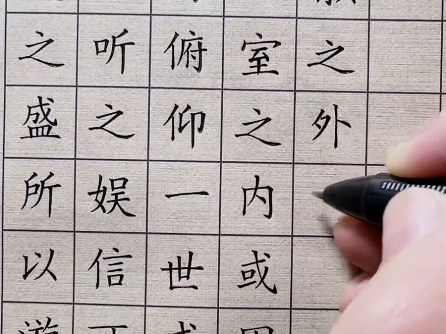 之外
室之内或因
俯仰一世或
听之娱信可
之盛所以游